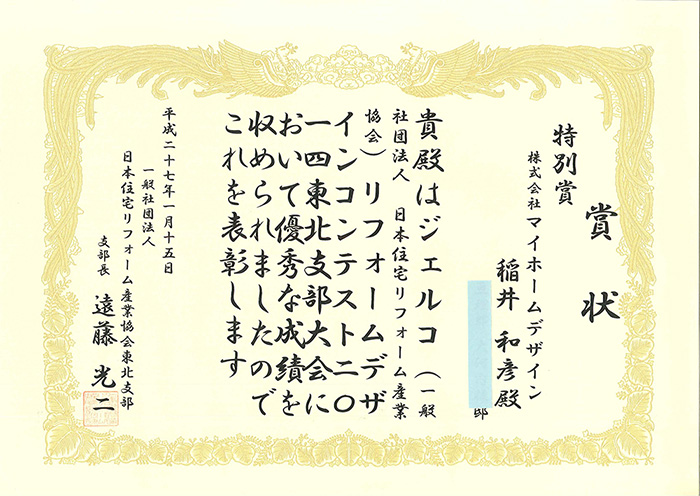 賞状
特別賞
株式会社マイホームデザイン
稲井和彦殿
邸
貴殿はジェルコ(一般
社団法人 日本住宅リフォーム産業
協会)リフォームデザ
インコンテスト二〇
一四東北支部大会に
おいて優秀な成績を
収められましたので
これを表彰します
平成二十七年一月十五日
一般社団法人
日本住宅リフォーム産業協会東北支部
支部長 遠藤光二